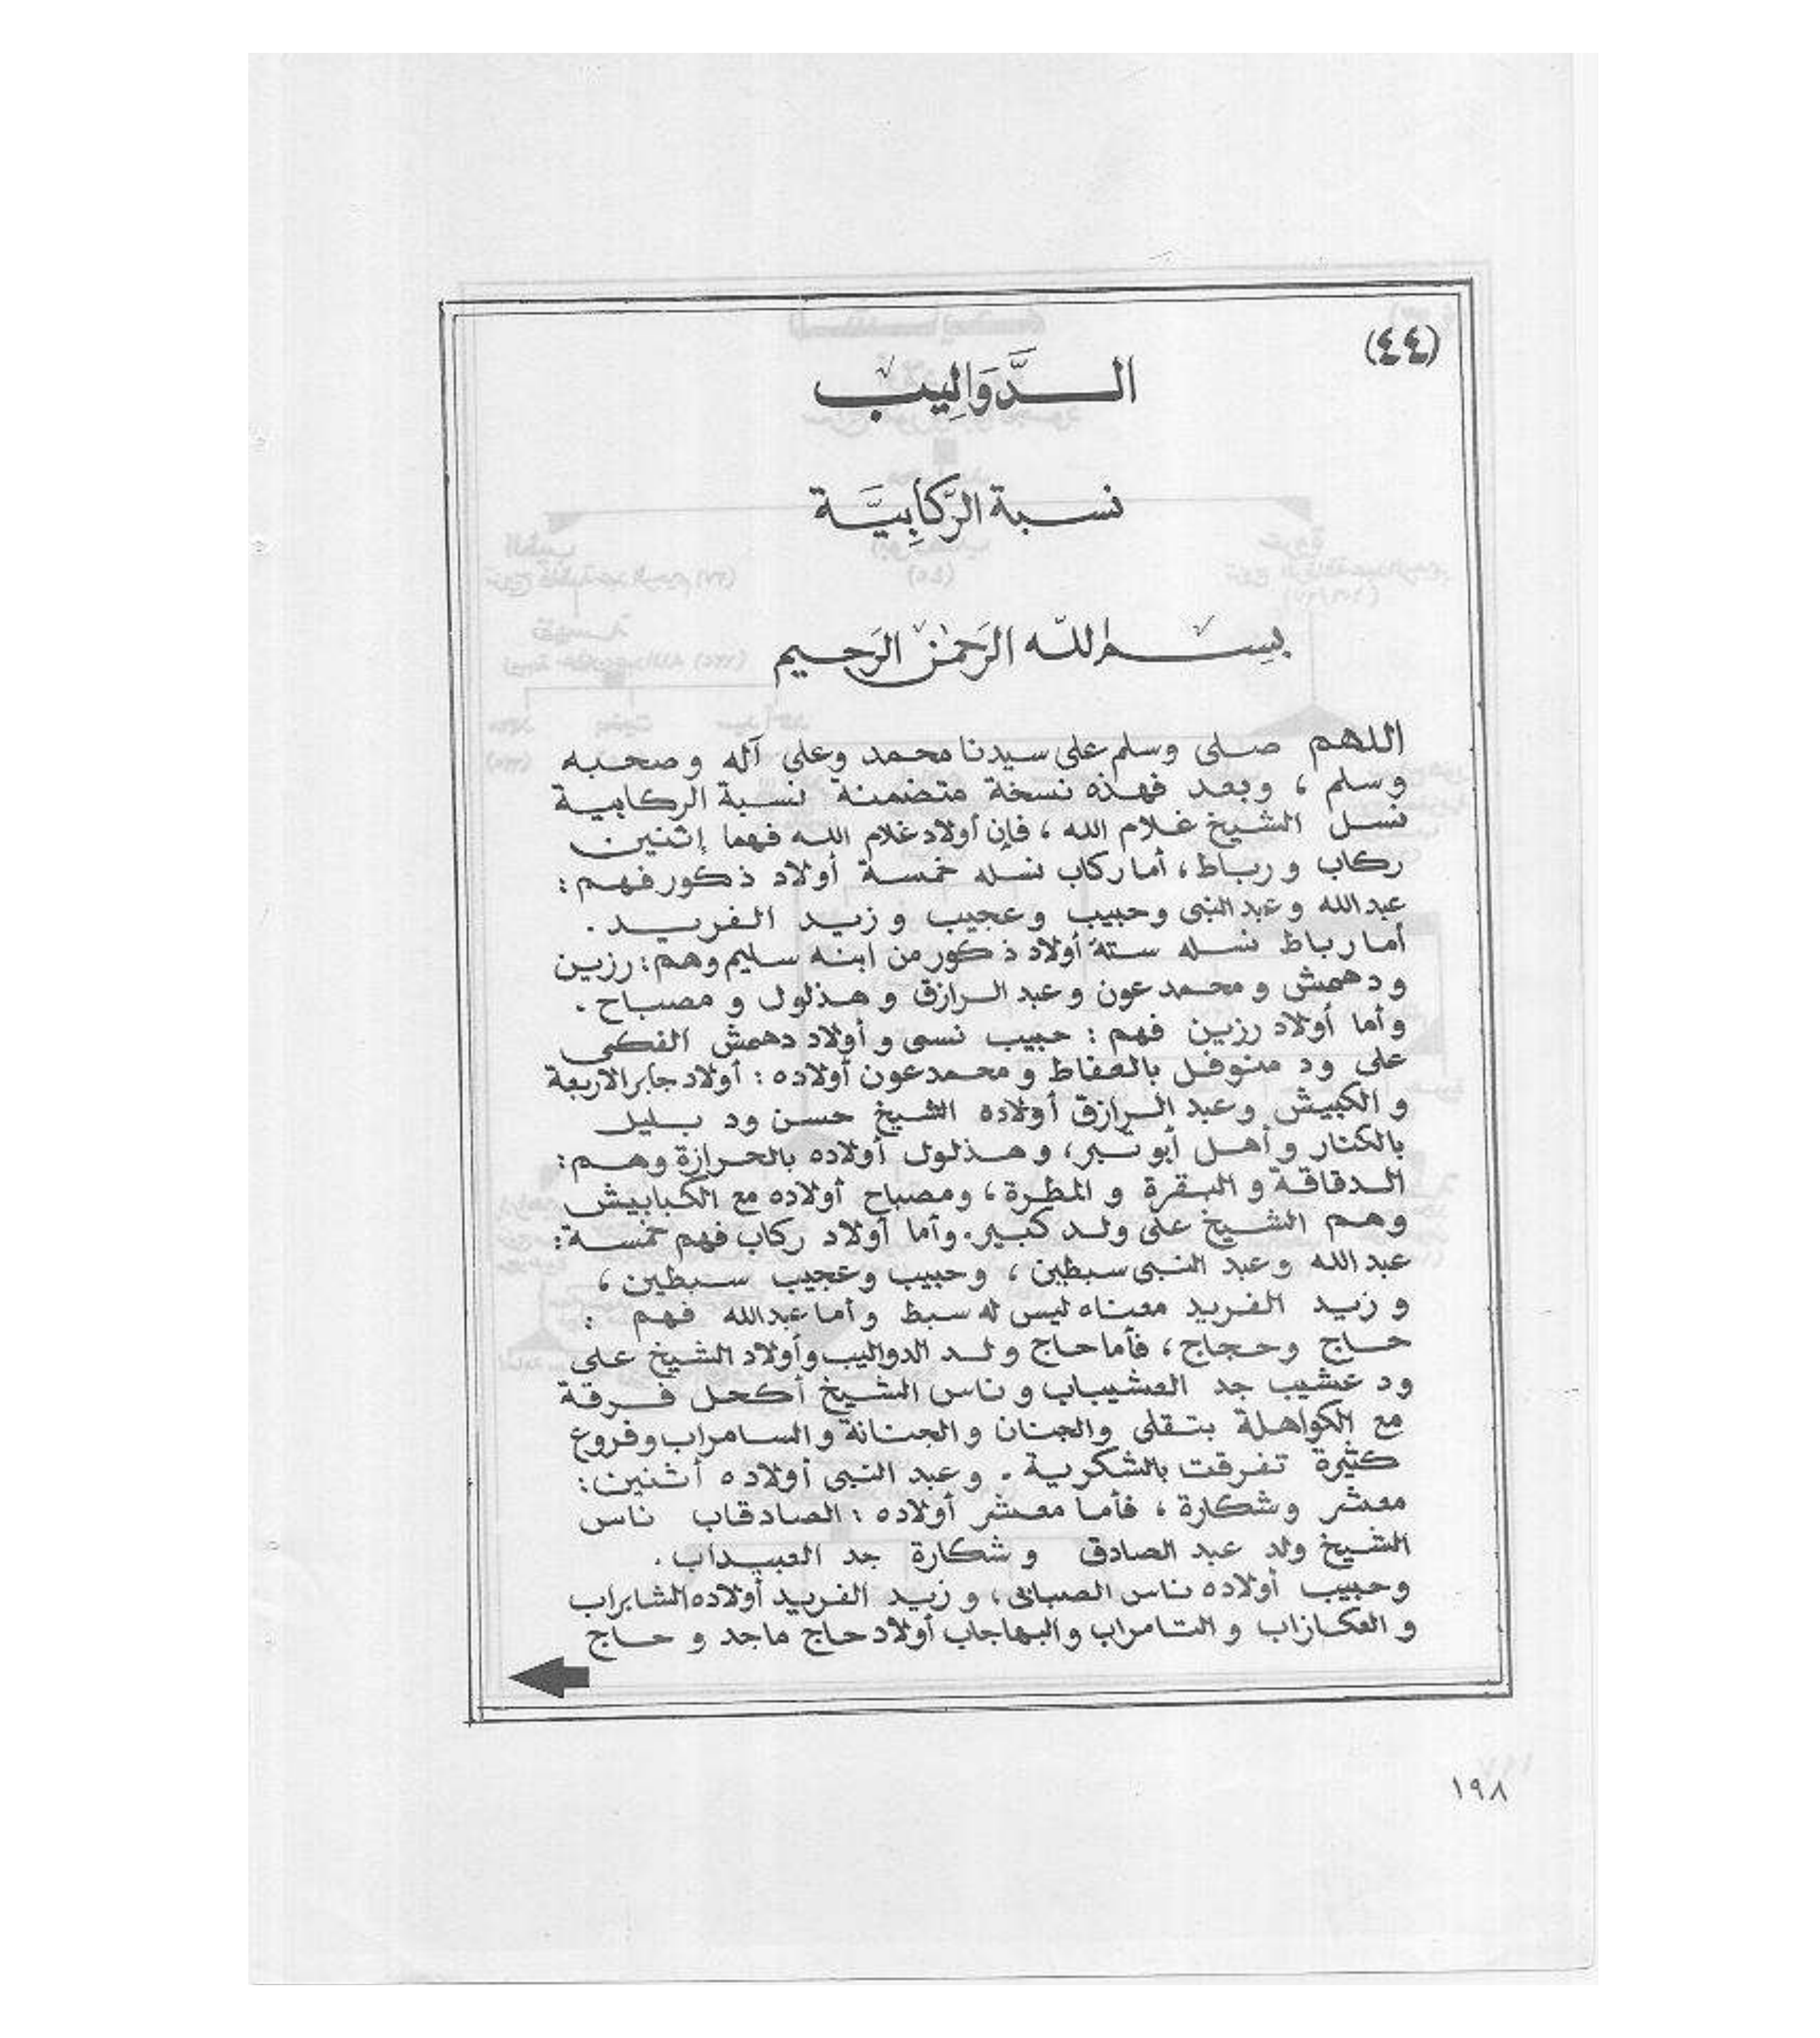 (٤٤)
الـــدَّوَالِيب
نسـبة الرَّكَابِيَّـة
بِسـم الله الرَحمٰن الرَحيم
اللهم صلى وسلم على سيدنا محمد وعلى آله وصحبه
وسلم ، وبعد فهذه نسخة متضمنة نسبة الركابية
نسل الشيخ غلام الله ، فإن أولاد غلام الله فهما إثنين
ركاب ورباط ، أما ركاب نسله خمسة أولاد ذكور فهم :
عبدالله وعبد النبى وحبيب وعجيب وزيد الفريد .
أما رباط نسله ستة أولاد ذكور من ابنه سليم وهم : رزين
ودهمش ومحمد عون وعبد الرازق وهذلول ومصباح .
وأما أولاد رزين فهم : حبيب نسى وأولاد دهمش الفكى
على ود منوفل بالعفاط ومحمد عون أولاده : أولاد جابر الاربعة
والكبيش وعبد الرازق أولاده الشيخ حسن ود بليل
بالكنار وأهل أبو تبر ، وهذلول أولاده بالحرازة وهم :
الدقاقة والبقرة والمطرة ، ومصباح أولاده مع الكبابيش
وهم الشيخ على ولد كبير . وأما أولاد ركاب فهم خمسة :
عبد الله وعبد النبى سبطين ، وحبيب وعجيب سبطين ،
وزيد الفريد معناه ليس له سبط وأما عبدالله فهم :
حاج وحجاج ، فأما حاج ولد الدواليب وأولاد الشيخ على
ود عشيب جد العشيباب وناس الشيخ أكحل فرقة
مع الكواهلة بتقلى والجنان والجنانة والسامراب وفروع
كثيرة تفرقت بالشكرية . وعبد النبى أولاده أثنين :
معشر وشكارة ، فأما معشر أولاده : الصادقاب ناس
الشيخ ولد عبد الصادق وشكارة جد العبيداب .
وحبيب أولاده ناس الصبابى ، وزيد الفريد أولاده الشابراب
والعكازاب والتامراب والبهاجاب أولاد حاج ماجد وحاج
١٩٨